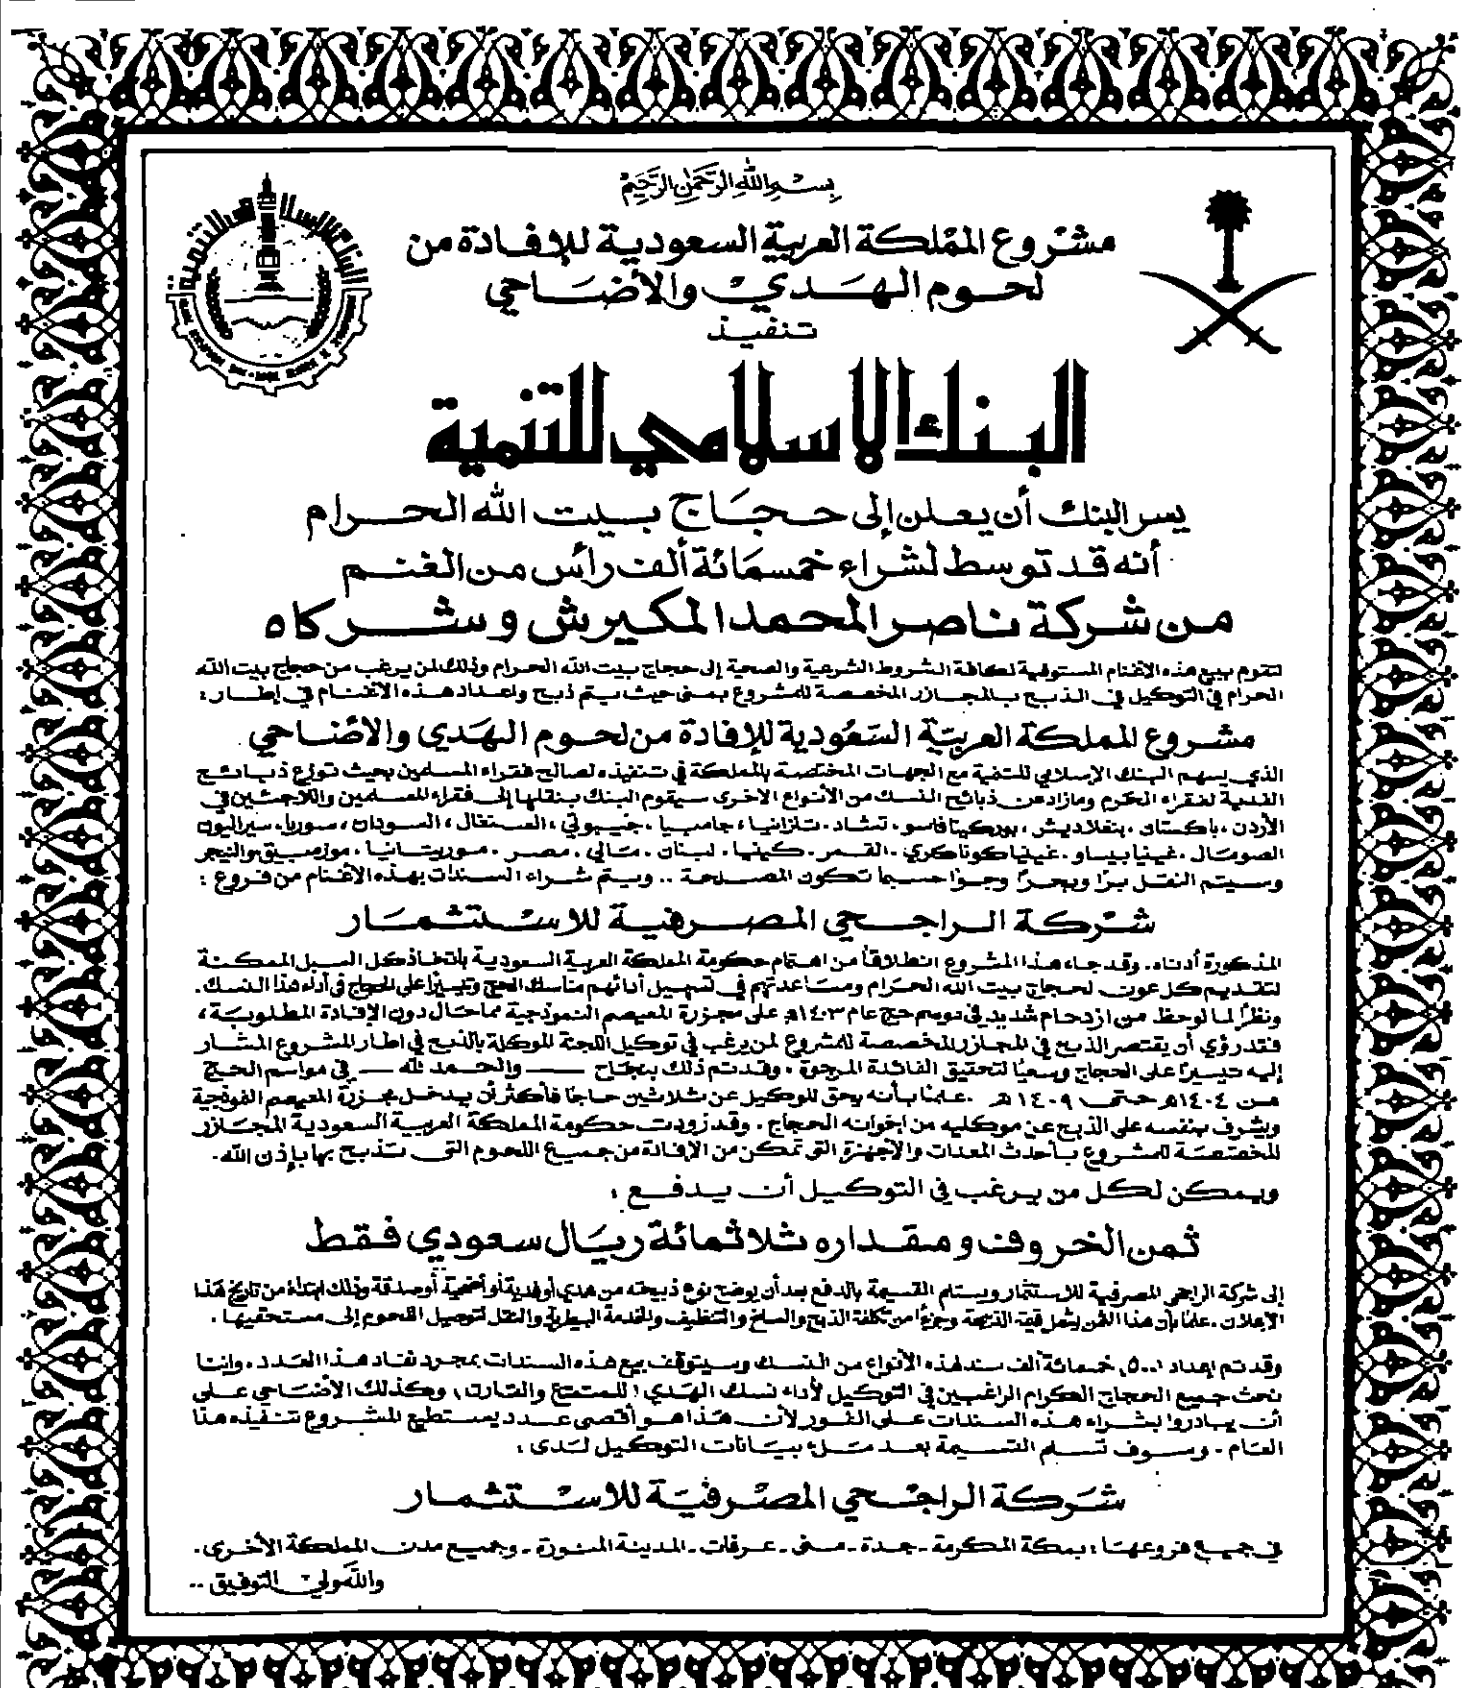 بسم الله الرحمن الرحيم
مشروع المملكة العربية السعودية للإفادة من
لحوم الهدي والأضاحي
تنفيذ
البنك الاسلامي للتنمية
يسر البنك أن يعلن إلى حجاج بيت الله الحرام
أنه قد توسط لشراء خمسمائة ألف رأس من الغنم
من شركة ناصر المحمد المكيرش وشركاه
لتقوم ببيع هذه الاغنام المستوفية لكافة الشروط الشرعية والصحية إلى حجاج بيت الله الحرام وذلك لمن يرغب من حجاج بيت الله
الحرام في التوكيل في الذبح بالمجازر المخصصة للمشروع بمنى حيث يتم ذبح واعداد هذه الاغنام في إطار :
مشروع المملكة العربية السعودية للإفادة من لحوم الهدي والاضاحي
الذي يسهم البنك الإسلامي للتنمية مع الجهات المختصة بالمملكة في تنفيذه لصالح فقراء المسلمين بحيث توزع ذبائح
الفدية لفقراء الحرم ومازاد من ذبائح النسك من الأنواع الاخرى سيقوم البنك بنقلها إلى فقراء المسلمين واللاجئين في
الأردن ، باكستان ، بنغلاديش ، بوركينا فاسو ، تشاد ، تنزانيا ، جامبيا ، جيبوتي ، السنغال ، السودان ، سوريا ، سيراليون
الصومال ، غينيا بيساو ، غينيا كوناكري ، القمر ، كينيا ، لبنان ، مالي ، مصر ، موريتانيا ، موزمبيق والنيجر
وسيتم النقل برا وبحرا وجوا حسبما تكون المصلحة .. ويتم شراء السندات بهذه الاغنام من فروع :
شركة الراجحي المصرفية للاستثمار
المذكورة أدناه . وقد جاء هذا المشروع انطلاقا من اهتمام حكومة المملكة العربية السعودية باتخاذ كل السبل الممكنة
لتقديم كل عون لحجاج بيت الله الحرام ومساعدتهم في تسهيل أدائهم مناسك الحج وتيسيرا على الحجاج في أداء هذا النسك .
ونظرا لما لوحظ من ازدحام شديد في موسم حج عام ١٤٠٣هـ على مجزرة المعيصم النموذجية مما حال دون الإفادة المطلوبة ،
فقد رؤي أن يقتصر الذبح في المجازر المخصصة للمشروع لمن يرغب في توكيل اللجنة الموكلة بالذبح في اطار المشروع المشار
إليه تيسيرا على الحجاج وسعيا لتحقيق الفائدة المرجوة ، وقد تم ذلك بنجاح — والحمد لله — في مواسم الحج
من ١٤٠٤هـ حتى ١٤٠٩هـ . علما بأنه يحق للوكيل عن ثلاثين حاجا فأكثر أن يدخل مجزرة المعيصم النموذجية
ويشرف بنفسه على الذبح عن موكليه من اخوانه الحجاج . وقد زودت حكومة المملكة العربية السعودية المجازر
المخصصة للمشروع بأحدث المعدات والاجهزة التي تمكن من الإفادة من جميع اللحوم التي تذبح بها بإذن الله .
ويمكن لكل من يرغب في التوكيل أن يدفع :
ثمن الخروف ومقداره ثلاثمائة ريال سعودي فقط
إلى شركة الراجحي المصرفية للاستثمار ويستلم القسيمة بالدفع بعد أن يوضح نوع ذبيحته من هدي أو فدية أو أضحية أو صدقة وذلك ابتداء من تاريخ هذا
الاعلان . علما بأن هذا الثمن يشمل قيمة الذبيحة وجزءا من تكلفة الذبح والسلخ والتنظيف والخدمة البيطرية والنقل لتوصيل اللحوم إلى مستحقيها .
وقد تم إعداد ٥٠٠, خمسمائة ألف سند لهذه الأنواع من النسك وسيتوقف بيع هذه السندات بمجرد نفاد هذا العدد ، واننا
نحث جميع الحجاج الكرام الراغبين في التوكيل لأداء نسك الهدي ( للمتمتع والقارن ) وكذلك الاضاحي على
أن يبادروا بشراء هذه السندات على الفور لأن هذا هو أقصى عدد يستطيع المشروع تنفيذه هذا
العام . وسوف تسلم القسيمة بعد ملء بيانات التوكيل لدى :
شركة الراجحي المصرفية للاستثمار
في جميع فروعها : بمكة المكرمة - جدة - منى - عرفات - المدينة المنورة - وجميع مدن المملكة الأخرى .
والله ولي التوفيق ..